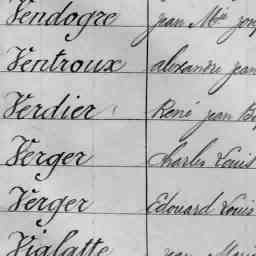 Vendogre Jean Mie Jos
Ventroux alexandre jean
Verdier René jean Ba
Verger Charles Louis
Verger Edouard Louis
Viglatte jean Marie